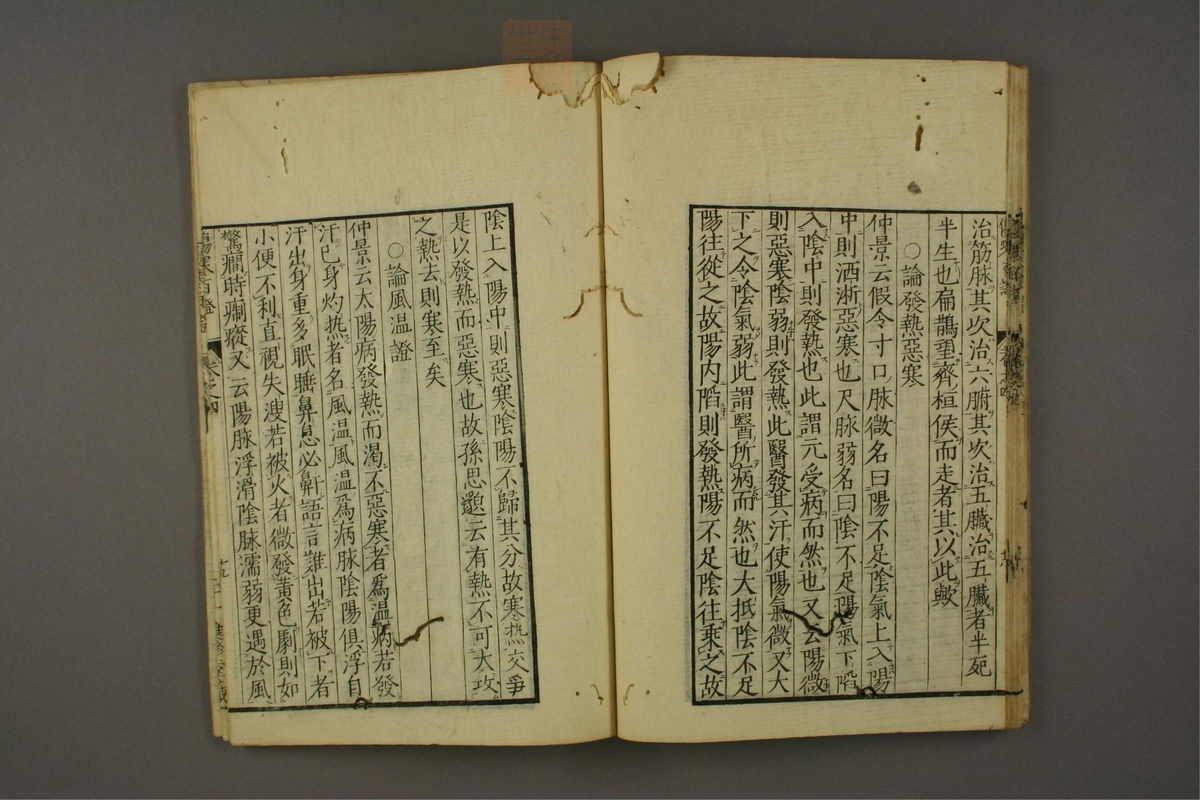 治筋脉其次治六腑其次治五臟治五臟者半死
半生也扁鵲望齊桓侯而走者其以此歟
○論發熱惡寒
仲景云假令寸口脉微名曰陽不足陰氣上入陽
中則洒淅惡寒也尺脉弱名曰陰不足陽氣下陷
入陰中則發熱也此謂元受病而然也又云陽微
則惡寒陰弱則發熱此醫發其汗使陽氣微又大
下之令陰氣弱此謂醫所病而然也大抵陰不足
陽往從之故陽内陷則發熱陽不足陰往乘之故
陰上入陽中則惡寒陰陽不歸其分故寒热交爭
是以發熱而惡寒也故孫思邈云有熱不可大攻
之熱去則寒至矣
○論風温證
仲景云太陽病發热而渴不惡寒者爲温病若發
汗已身灼热者名風温風温爲病脉陰陽俱浮自
汗出身重多眠睡鼻息必鼾語言難出若被下者
小便不利直視失溲若被火者微發黄色劇則如
驚癎時瘈瘲又云陽脉浮滑陰脉濡弱更遇於風
卷之四